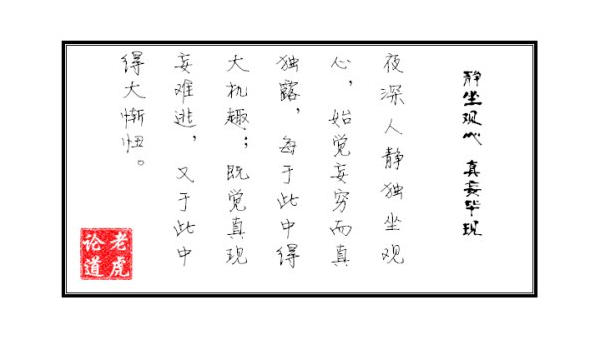 静坐观心 真妄毕现
夜深人静独坐观
心，始觉妄穷而真
独露，每于此中得
大机趣；既觉真现
妄难逃，又于此中
得大惭忸。
老虎
论道